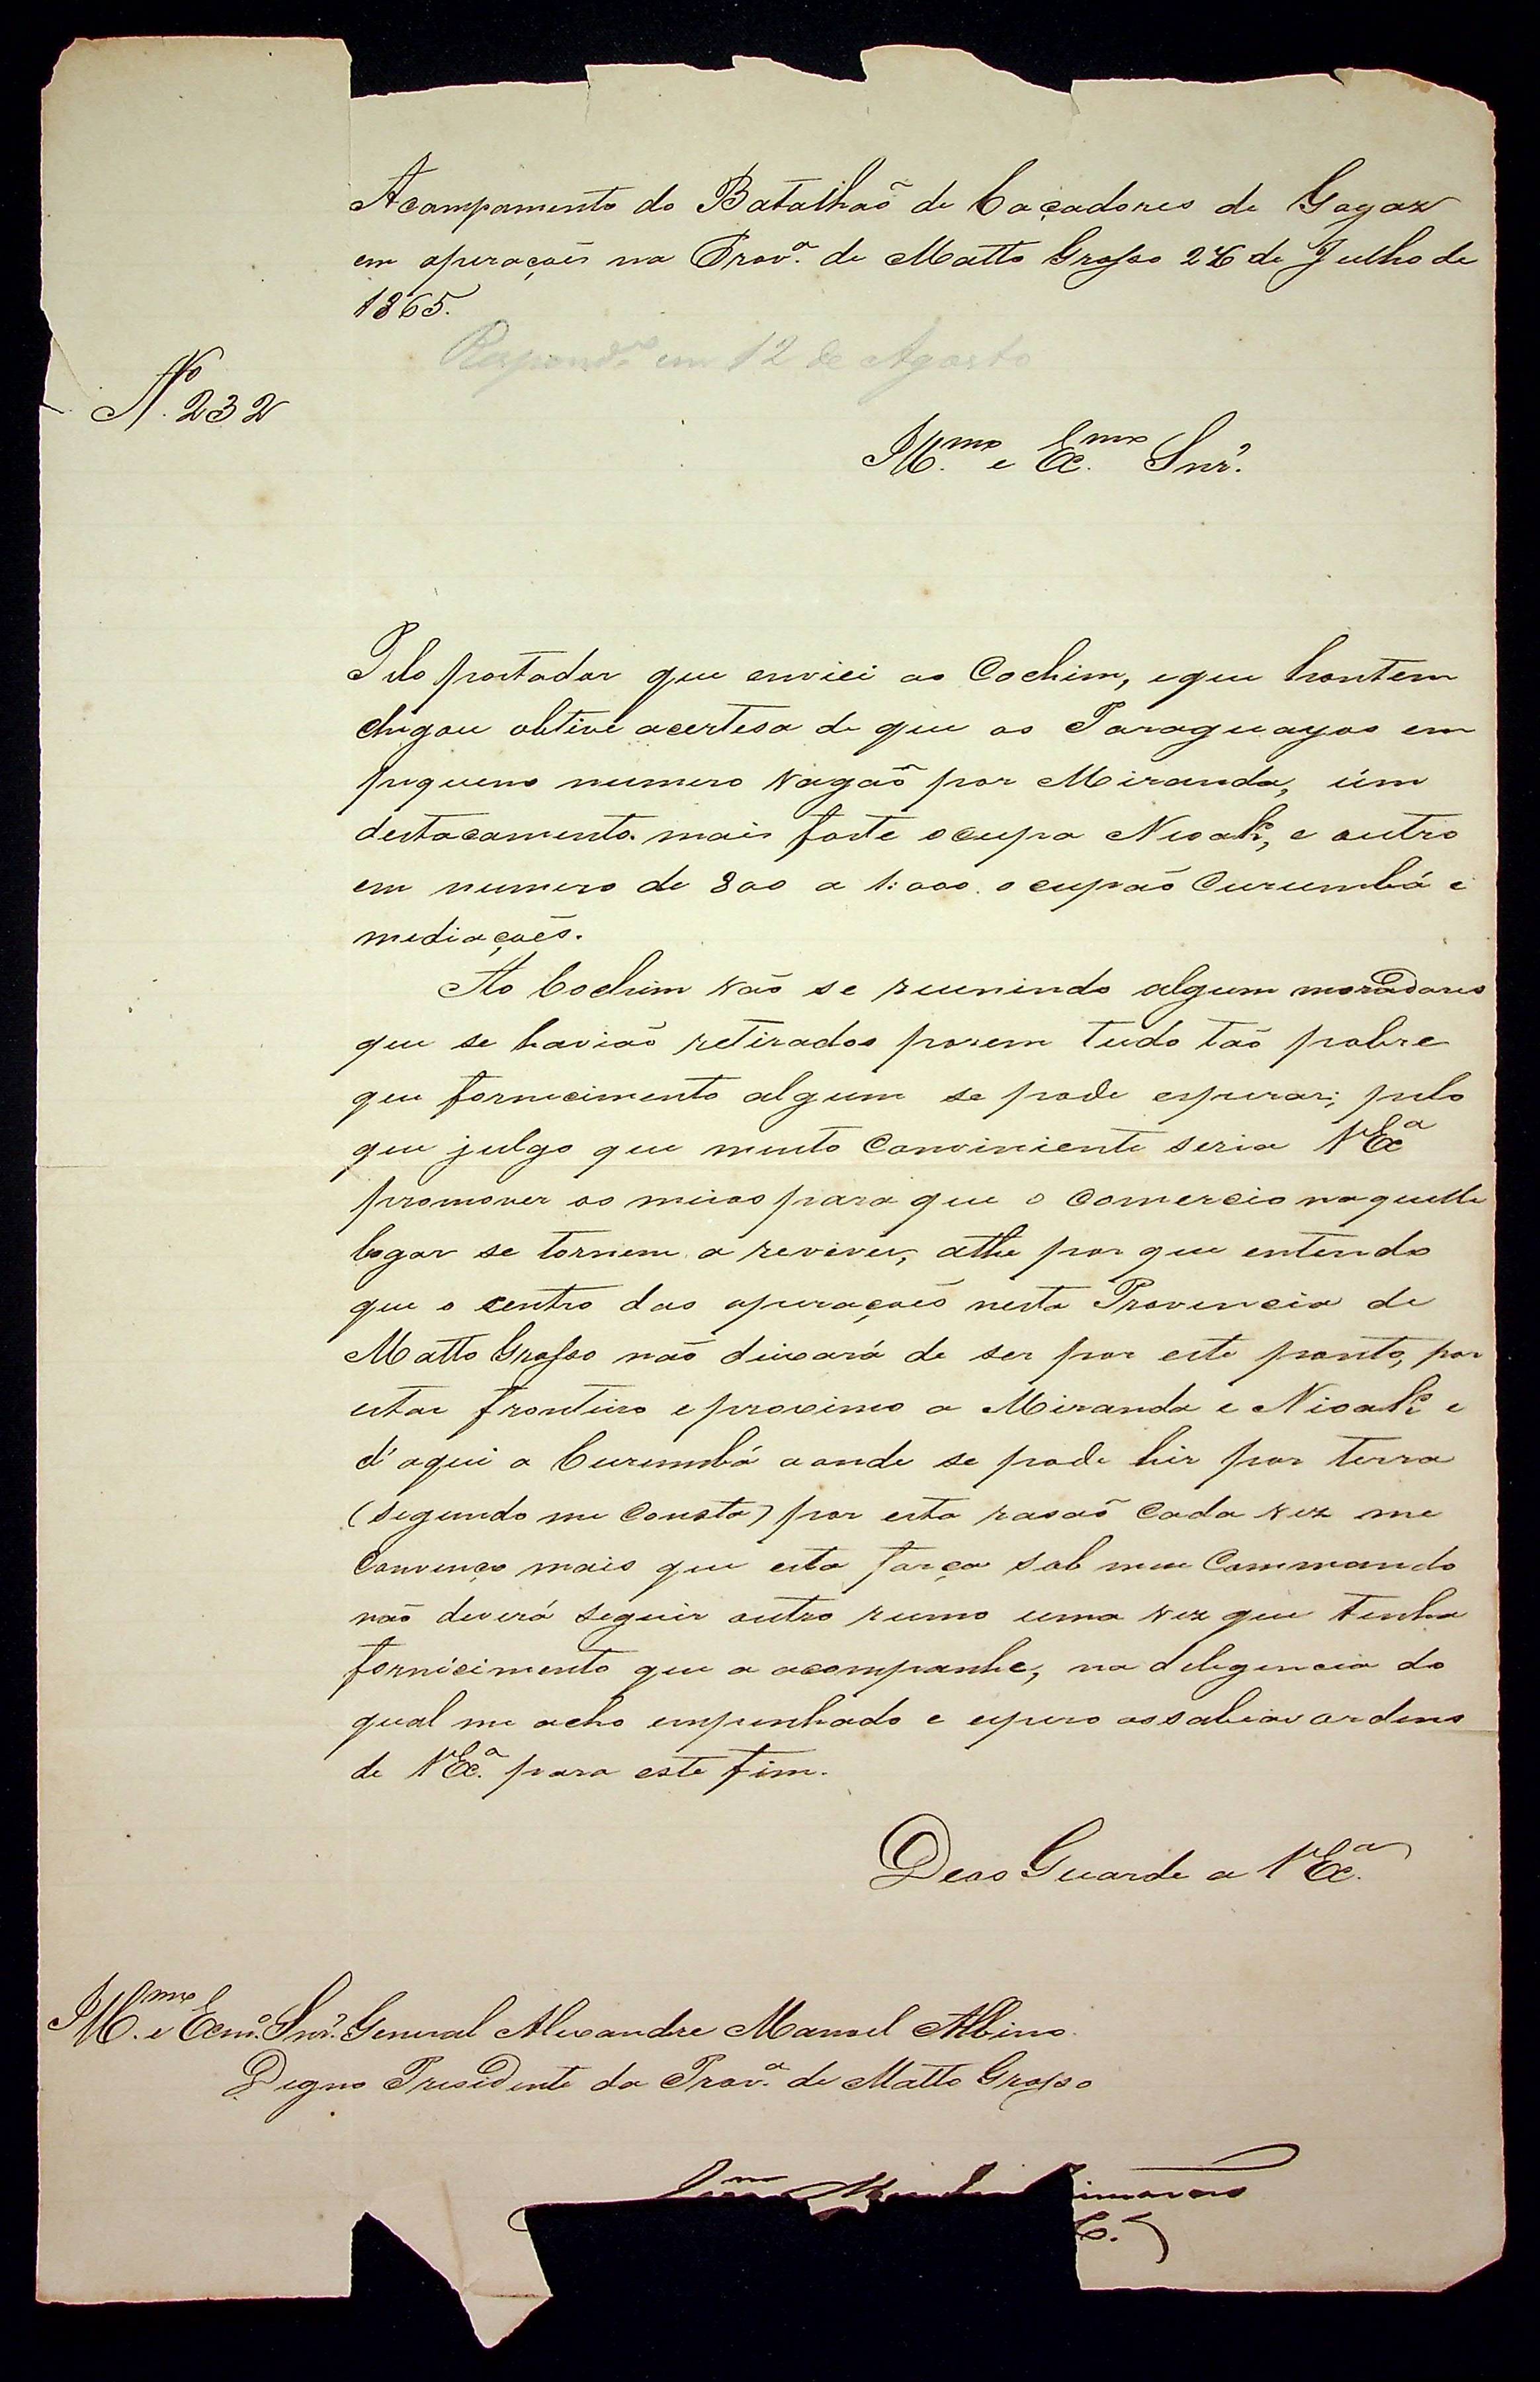 Acampamento do Batalhaõ de Caçadores de Goyaz
em operaçoẽs na Prov.ª de Matto Grosso 26 de Julho de
1865.
Respond.º em 12 de Agosto
N.º 232
Ill.mo e Ex.mo Snr.
Pelo portador que enviei ao Cochim, e que hontem
chegou obtive a certesa de que os Paraguayos em
pequeno numero vagaõ por Miranda, úm
destacamento mais forte occupa Nioak, e outro
em numero de 800 a 1:000 occupaõ Curumbá e
mediaçoẽs.
Ao Cochim vaõ se reunindo algum moradores
que se haviaõ retirados porem tudo taõ pobre
que fornecimento algum se pode esperar; pelo
que julgo que muito conviniente seria V Ex.ª
promover os meios para que o comercio naquelle
logar se tornem a reviver, athe por que entendo
que o centro das operaçoẽs nesta Provincia de
Matto Grosso naõ deixará de ser por este ponto, por
estar fronteiro e proximo a Miranda e Nioak e
d'aqui a Curumbá aonde se pode hir por terra
(segundo me consta) por esta rasaõ cada vez me
convenço mais que esta força sob meu Commando
naõ deverá seguir outro rumo uma vez que tenha
fornicimento que a acompanhe, na deligencia do
qual me acho empenhado e espero as sabias ordens
de V Ex.ª para este fim.
Deos Guarde a V Ex.ª
Ill.mo e Exm.º Snr. General Alexandre Manoel Albino
Digno Presidente da Prov.ª de Matto Grosso